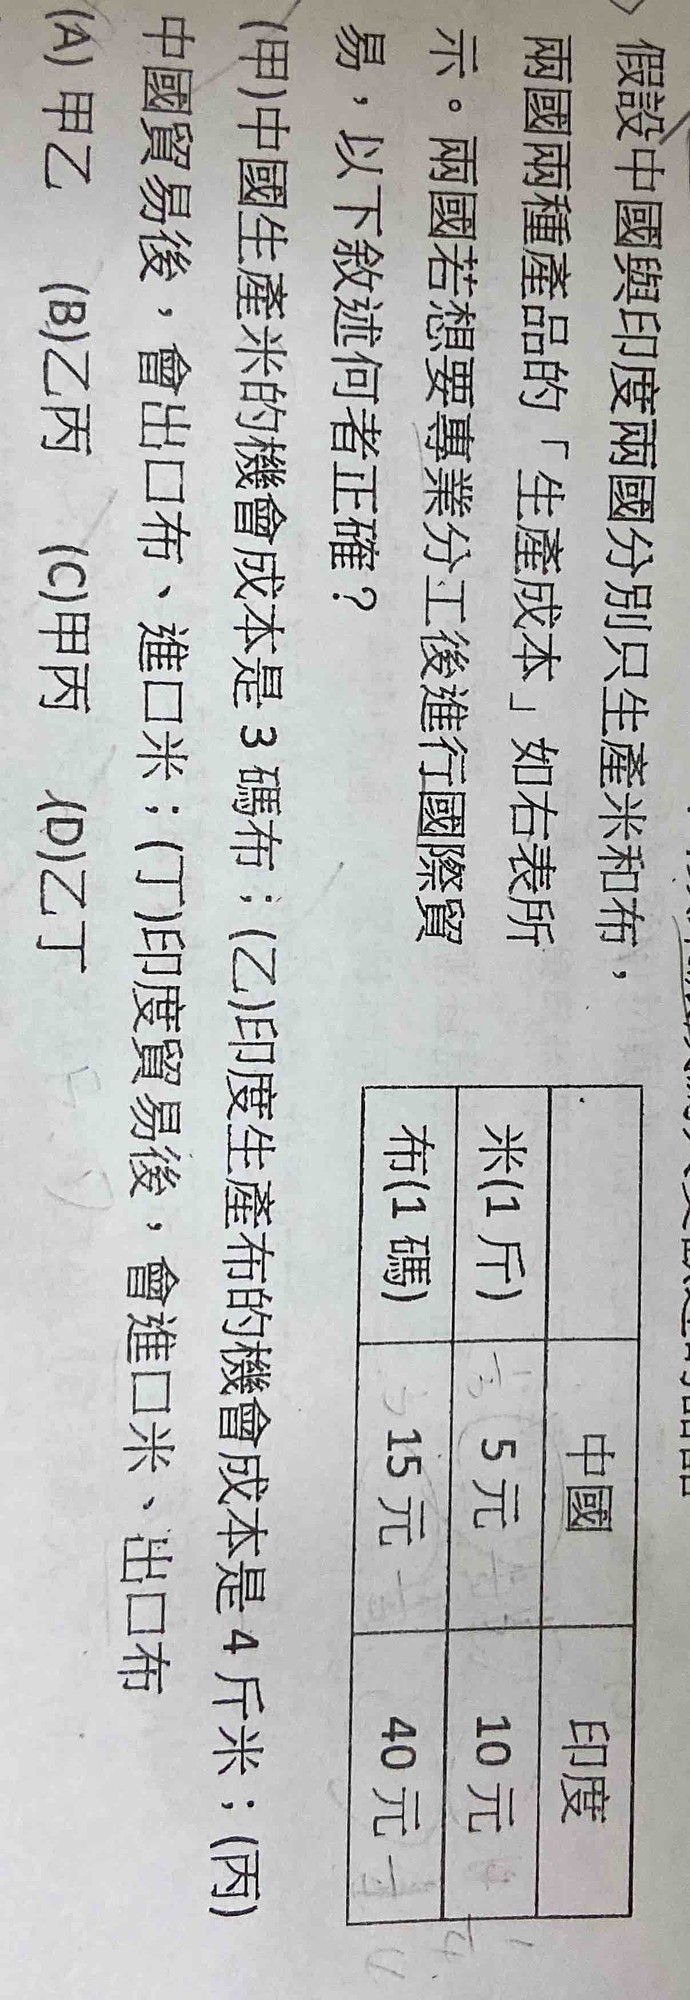 假設中國與印度兩國分別只生產米和布，
兩國兩種產品的「生產成本」如右表所
示。兩國若想要專業分工後進行國際貿
易，以下敘述何者正確？
中國 印度
米(1 斤) 5 元 10 元
布(1 碼) 15 元 40 元
(甲)中國生產米的機會成本是 3 碼布；(乙)印度生產布的機會成本是 4 斤米；(丙)
中國貿易後，會出口布、進口米；(丁)印度貿易後，會進口米、出口布
(A) 甲乙 (B)乙丙 (C)甲丙 (D)乙丁